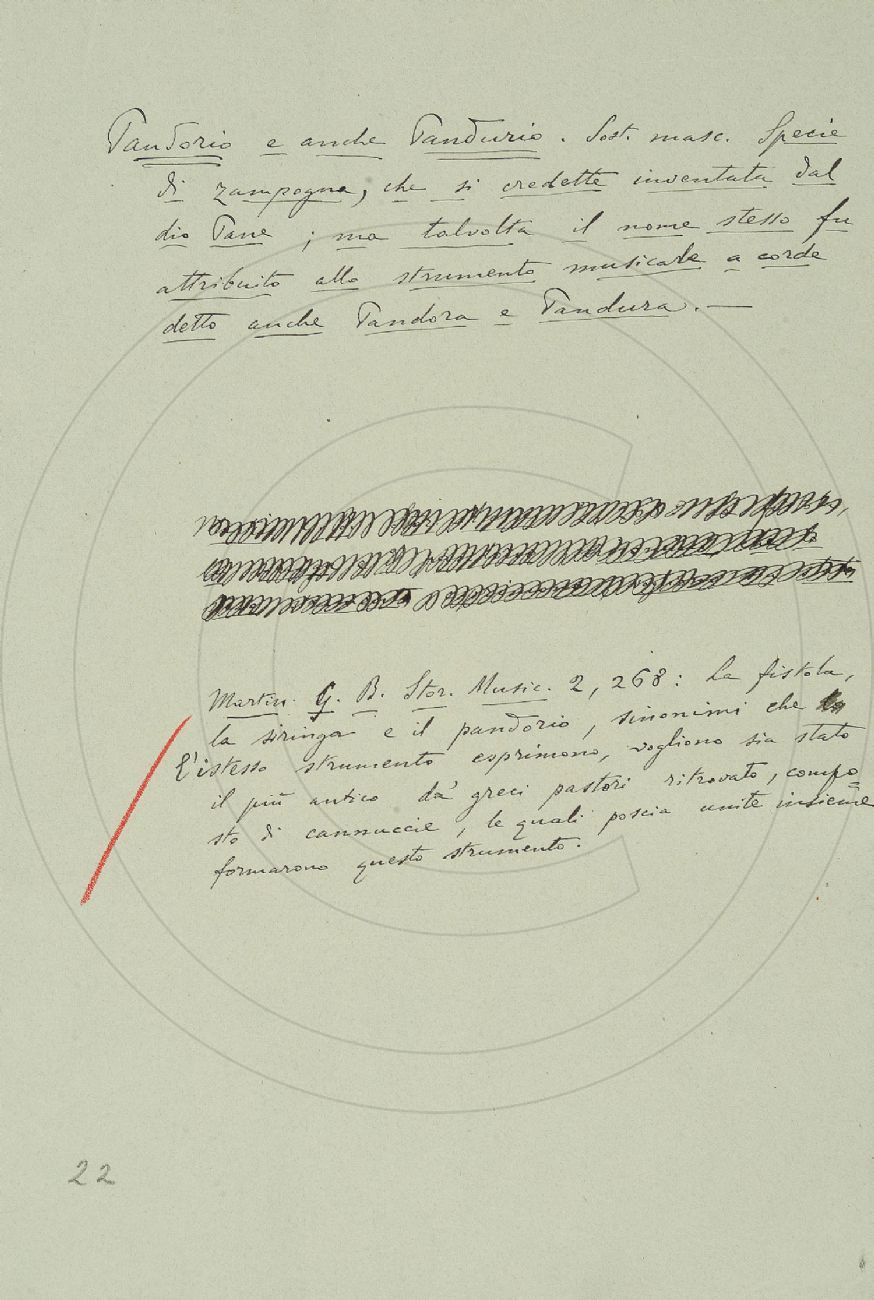 Pandorio e anche Pandurio. Sost. masc. Specie
di zampogna, che si credette inventata dal
dio Pane; ma talvolta il nome stesso fu
attribuito allo strumento musicale a corde
detto anche Pandora e Pandura. —
Martin. G. B. Stor. Music. 2, 268: La fistola,
la siringa e il pandorio, sinonimi che
l'istesso strumento esprimono, vogliono sia stato
il più antico da' greci pastori ritrovato, compo=
sto di cannuccie, le quali poscia unite insieme
formarono questo strumento.
22